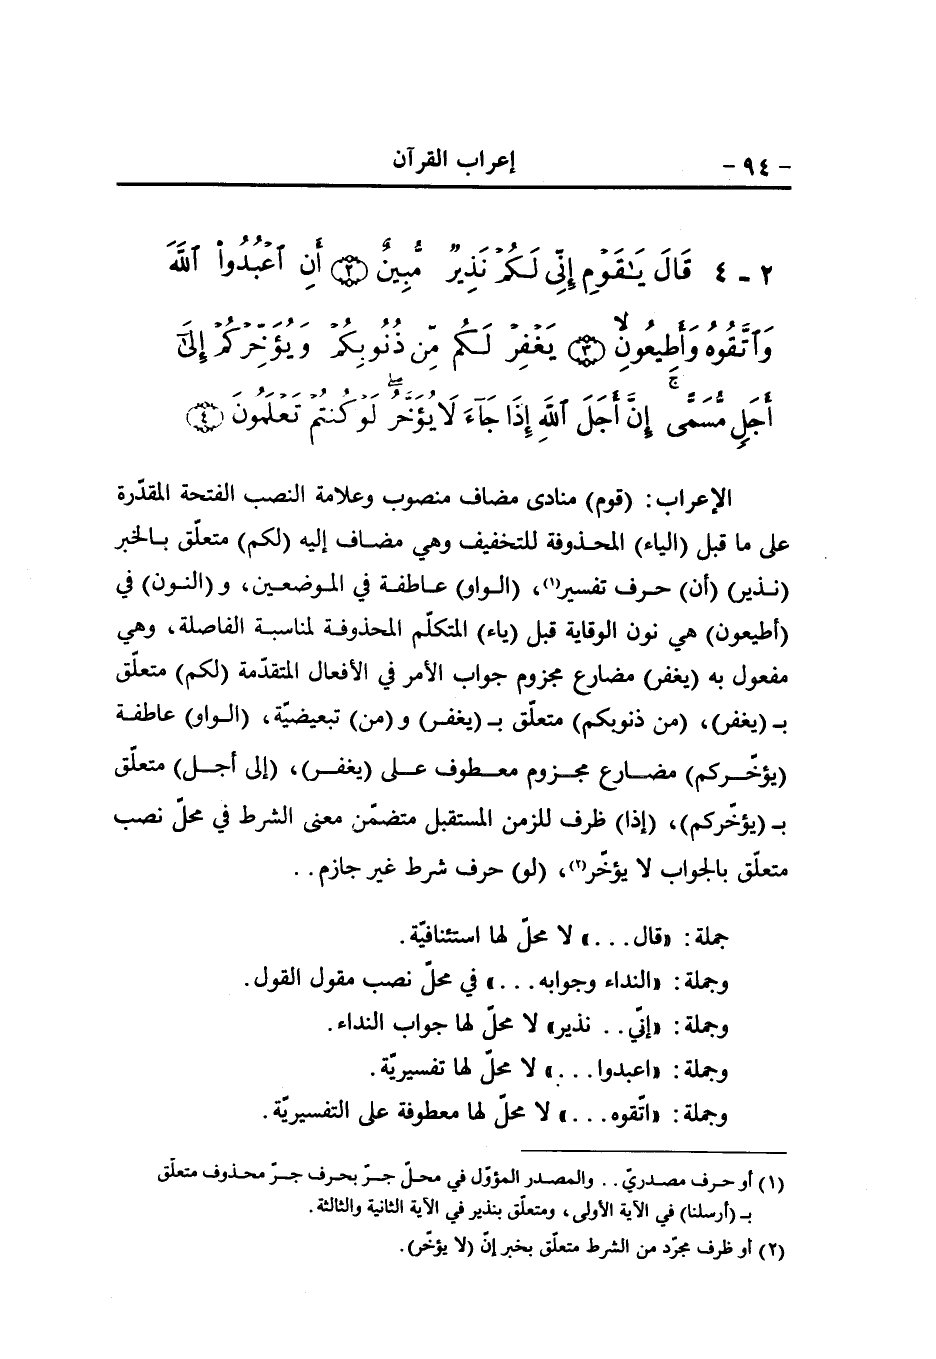 - ٩٤ - إعراب القرآن
٢ - ٤ قَالَ يَـٰقَوْمِ إِنِّى لَكُمْ نَذِيرٌ مُّبِينٌ ﴿٢﴾ أَنِ ٱعْبُدُوا۟ ٱللَّهَ
وَٱتَّقُوهُ وَأَطِيعُونِ ﴿٣﴾ يَغْفِرْ لَكُم مِّن ذُنُوبِكُمْ وَيُؤَخِّرْكُمْ إِلَىٰٓ
أَجَلٍ مُّسَمًّى ۚ إِنَّ أَجَلَ ٱللَّهِ إِذَا جَآءَ لَا يُؤَخَّرُ ۖ لَوْ كُنتُمْ تَعْلَمُونَ ﴿٤﴾
الإعراب: (قوم) منادى مضاف منصوب وعلامة النصب الفتحة المقدّرة
على ما قبل (الياء) المحذوفة للتخفيف وهي مضاف إليه (لكم) متعلّق بالخبر
(نذير) (أن) حرف تفسير(١)، (الواو) عاطفة في الموضعين، و (النون) في
(أطيعون) هي نون الوقاية قبل (ياء) المتكلّم المحذوفة لمناسبة الفاصلة، وهي
مفعول به (يغفر) مضارع مجزوم جواب الأمر في الأفعال المتقدّمة (لكم) متعلّق
بـ (يغفر)، (من ذنوبكم) متعلّق بـ (يغفر) و (من) تبعيضيّة، (الواو) عاطفة
(يؤخّركم) مضارع مجزوم معطوف على (يغفر)، (إلى أجل) متعلّق
بـ (يؤخّركم)، (إذا) ظرف للزمن المستقبل متضمّن معنى الشرط في محلّ نصب
متعلّق بالجواب لا يؤخّر(٢)، (لو) حرف شرط غير جازم . .
جملة: «قال . . .» لا محلّ لها استئنافيّة.
وجملة: «النداء وجوابه . . .» في محلّ نصب مقول القول.
وجملة: «إنّي . . نذير» لا محلّ لها جواب النداء.
وجملة: «اعبدوا . . .» لا محلّ لها تفسيريّة.
وجملة: «اتّقوه . . .» لا محلّ لها معطوفة على التفسيريّة.
(١) أو حرف مصدريّ . . والمصدر المؤوّل في محلّ جرّ بحرف جرّ محذوف متعلّق
بـ (أرسلنا) في الآية الأولى، ومتعلّق بنذير في الآية الثانية والثالثة.
(٢) أو ظرف مجرّد من الشرط متعلّق بخبر إنّ (لا يؤخّر).